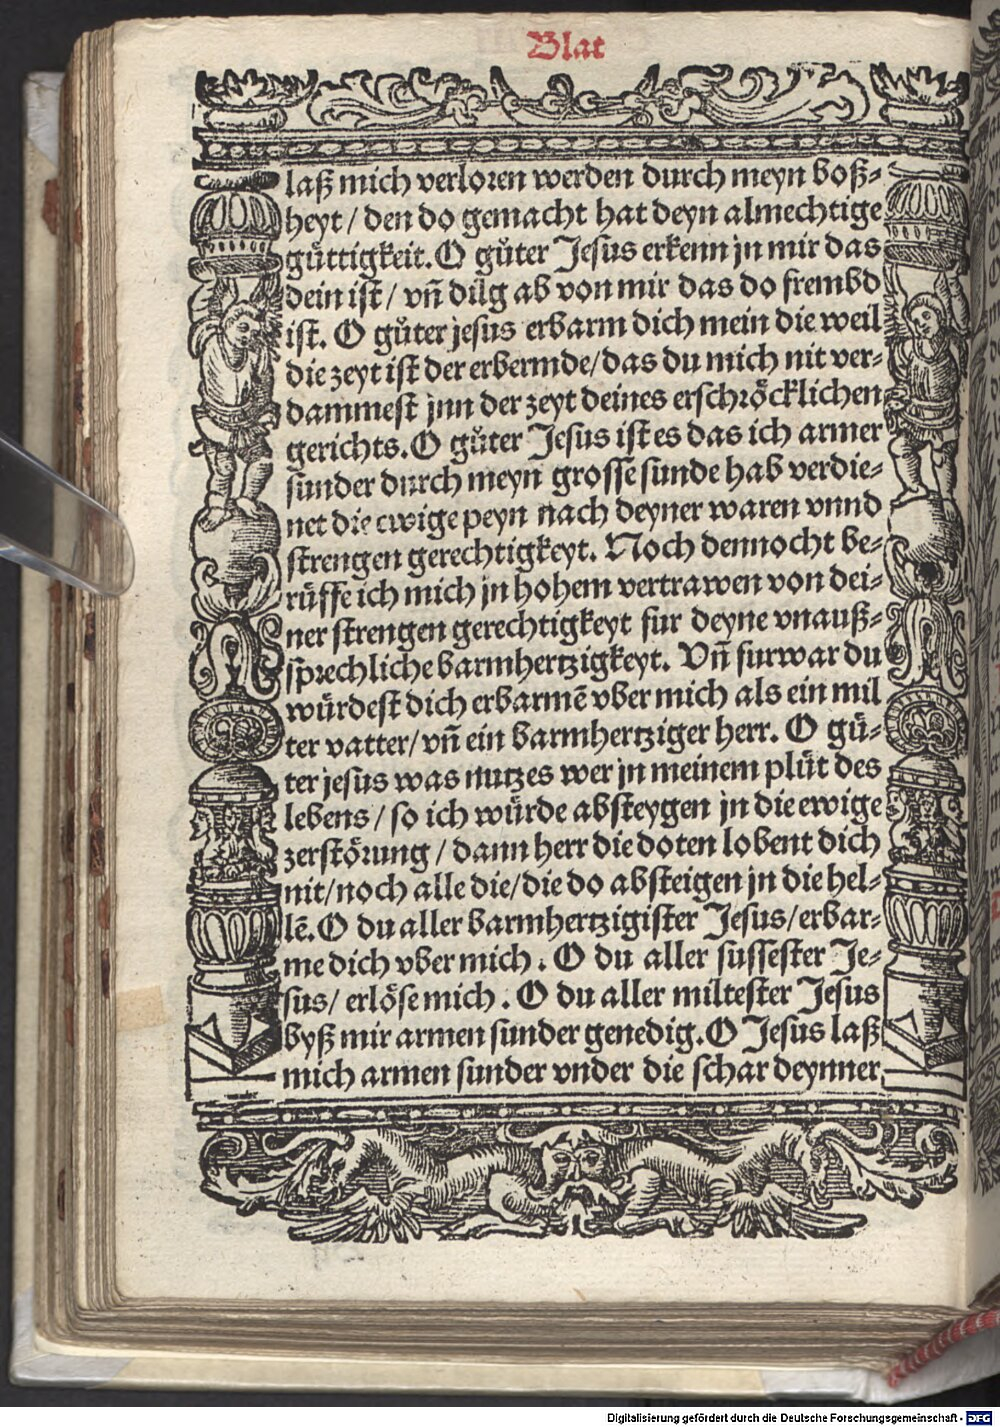 Blat
laß mich verloren werden durch meyn boß-
heyt / den do gemacht hat deyn almechtige
gůttigkeit. O gůter Jesus erkenn jn mir das
dein ist / vñ dilg ab von mir das do frembd
ist. O gůter jesus erbarm dich mein die weil
die zeyt ist der erbermde / das du mich nit ver-
dammest jnn der zeyt deines erschröcklichen
gerichts. O gůter Jesus ist es das ich armer
sunder durch meyn grosse sunde hab verdie-
net die ewige peyn nach deyner waren vnnd
strengen gerechtigkeyt. Noch dennocht be-
růffe ich mich jn hohem vertrawen von dei-
ner strengen gerechtigkeyt fur deyne vnauß-
sprechliche barmhertzigkeyt. Vñ furwar du
würdest dich erbarmē vber mich als ein mil
ter vatter / vñ ein barmhertziger herr. O gů-
ter jesus was nutzes wer jn meinem plůt des
lebens / so ich würde absteygen jn die ewige
zerstörung / dann herr die doten lobent dich
nit / noch alle die / die do absteigen jn die hel-
lē. O du aller barmhertzigister Jesus / erbar-
me dich vber mich . O du aller sussester Je-
sus / erlöse mich . O du aller miltester Jesus
byß mir armen sunder genedig. O Jesus laß
mich armen sunder vnder die schar deynner
Digitalisierung gefördert durch die Deutsche Forschungsgemeinschaft - DFG